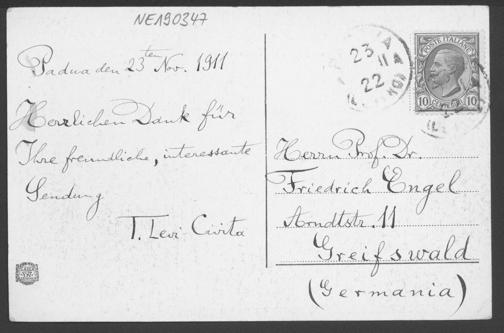 NE190347
Padua den 23ten Nov. 1911
Herzlichen Dank für
Ihre freundliche, interessante
Sendung
T. Levi-Civita
23
11
22
POSTE ITALIANE
10 10
Herrn Prof. Dr.
Friedrich Engel
Arndtstr. 11
Greifswald
(Germania)